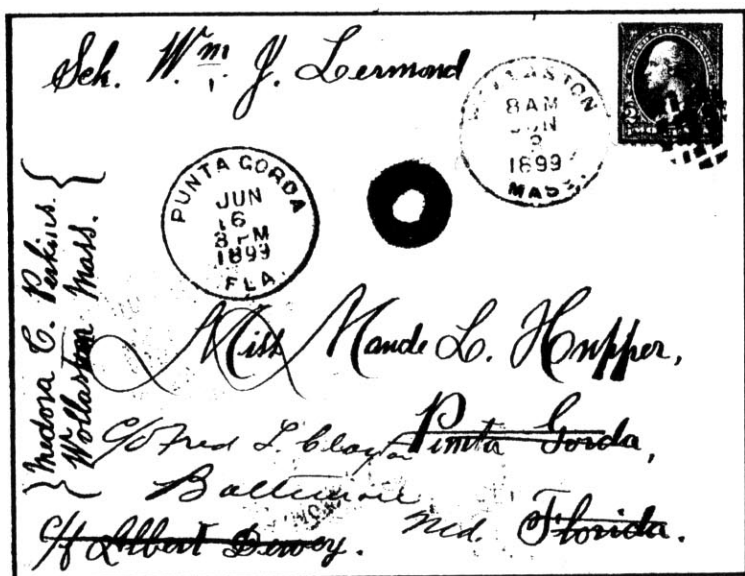 Sch. Wm. J. Lermond
UNITED STATES POSTAGE
2 2
WOLLASTON
8 AM
JUN
2
1899
MASS.
PUNTA GORDA
JUN
6
8 PM
1899
FLA.
Medora C. Perkins.
Wollaston Mass.
Miss Maude L. Hupper,
c/o Fred L. Clayton
Punta Gorda,
Baltimore
Md.
Florida.
c/o Albert Dewey.